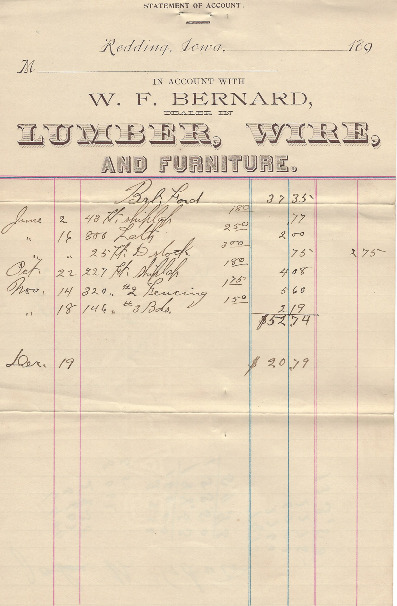 STATEMENT OF ACCOUNT.
Redding, Iowa, 189
M
IN ACCOUNT WITH
W. F. BERNARD,
DEALER IN
LUMBER, WIRE,
AND FURNITURE.
Ford 37 35
June 2 43 ft. shiplap 18 00 77
" 16 800 Lath 25 00 2 00
" " 25 ft. D stock 3 00 75 2 75
Oct. 22 227 ft. Shiplap 18 00 4 08
Nov. 14 320 " #2 Fencing 1 75 5 60
" 18 146 " #3 Bds. 15 0 2 19
$52 74
Dec. 19 $ 20 79